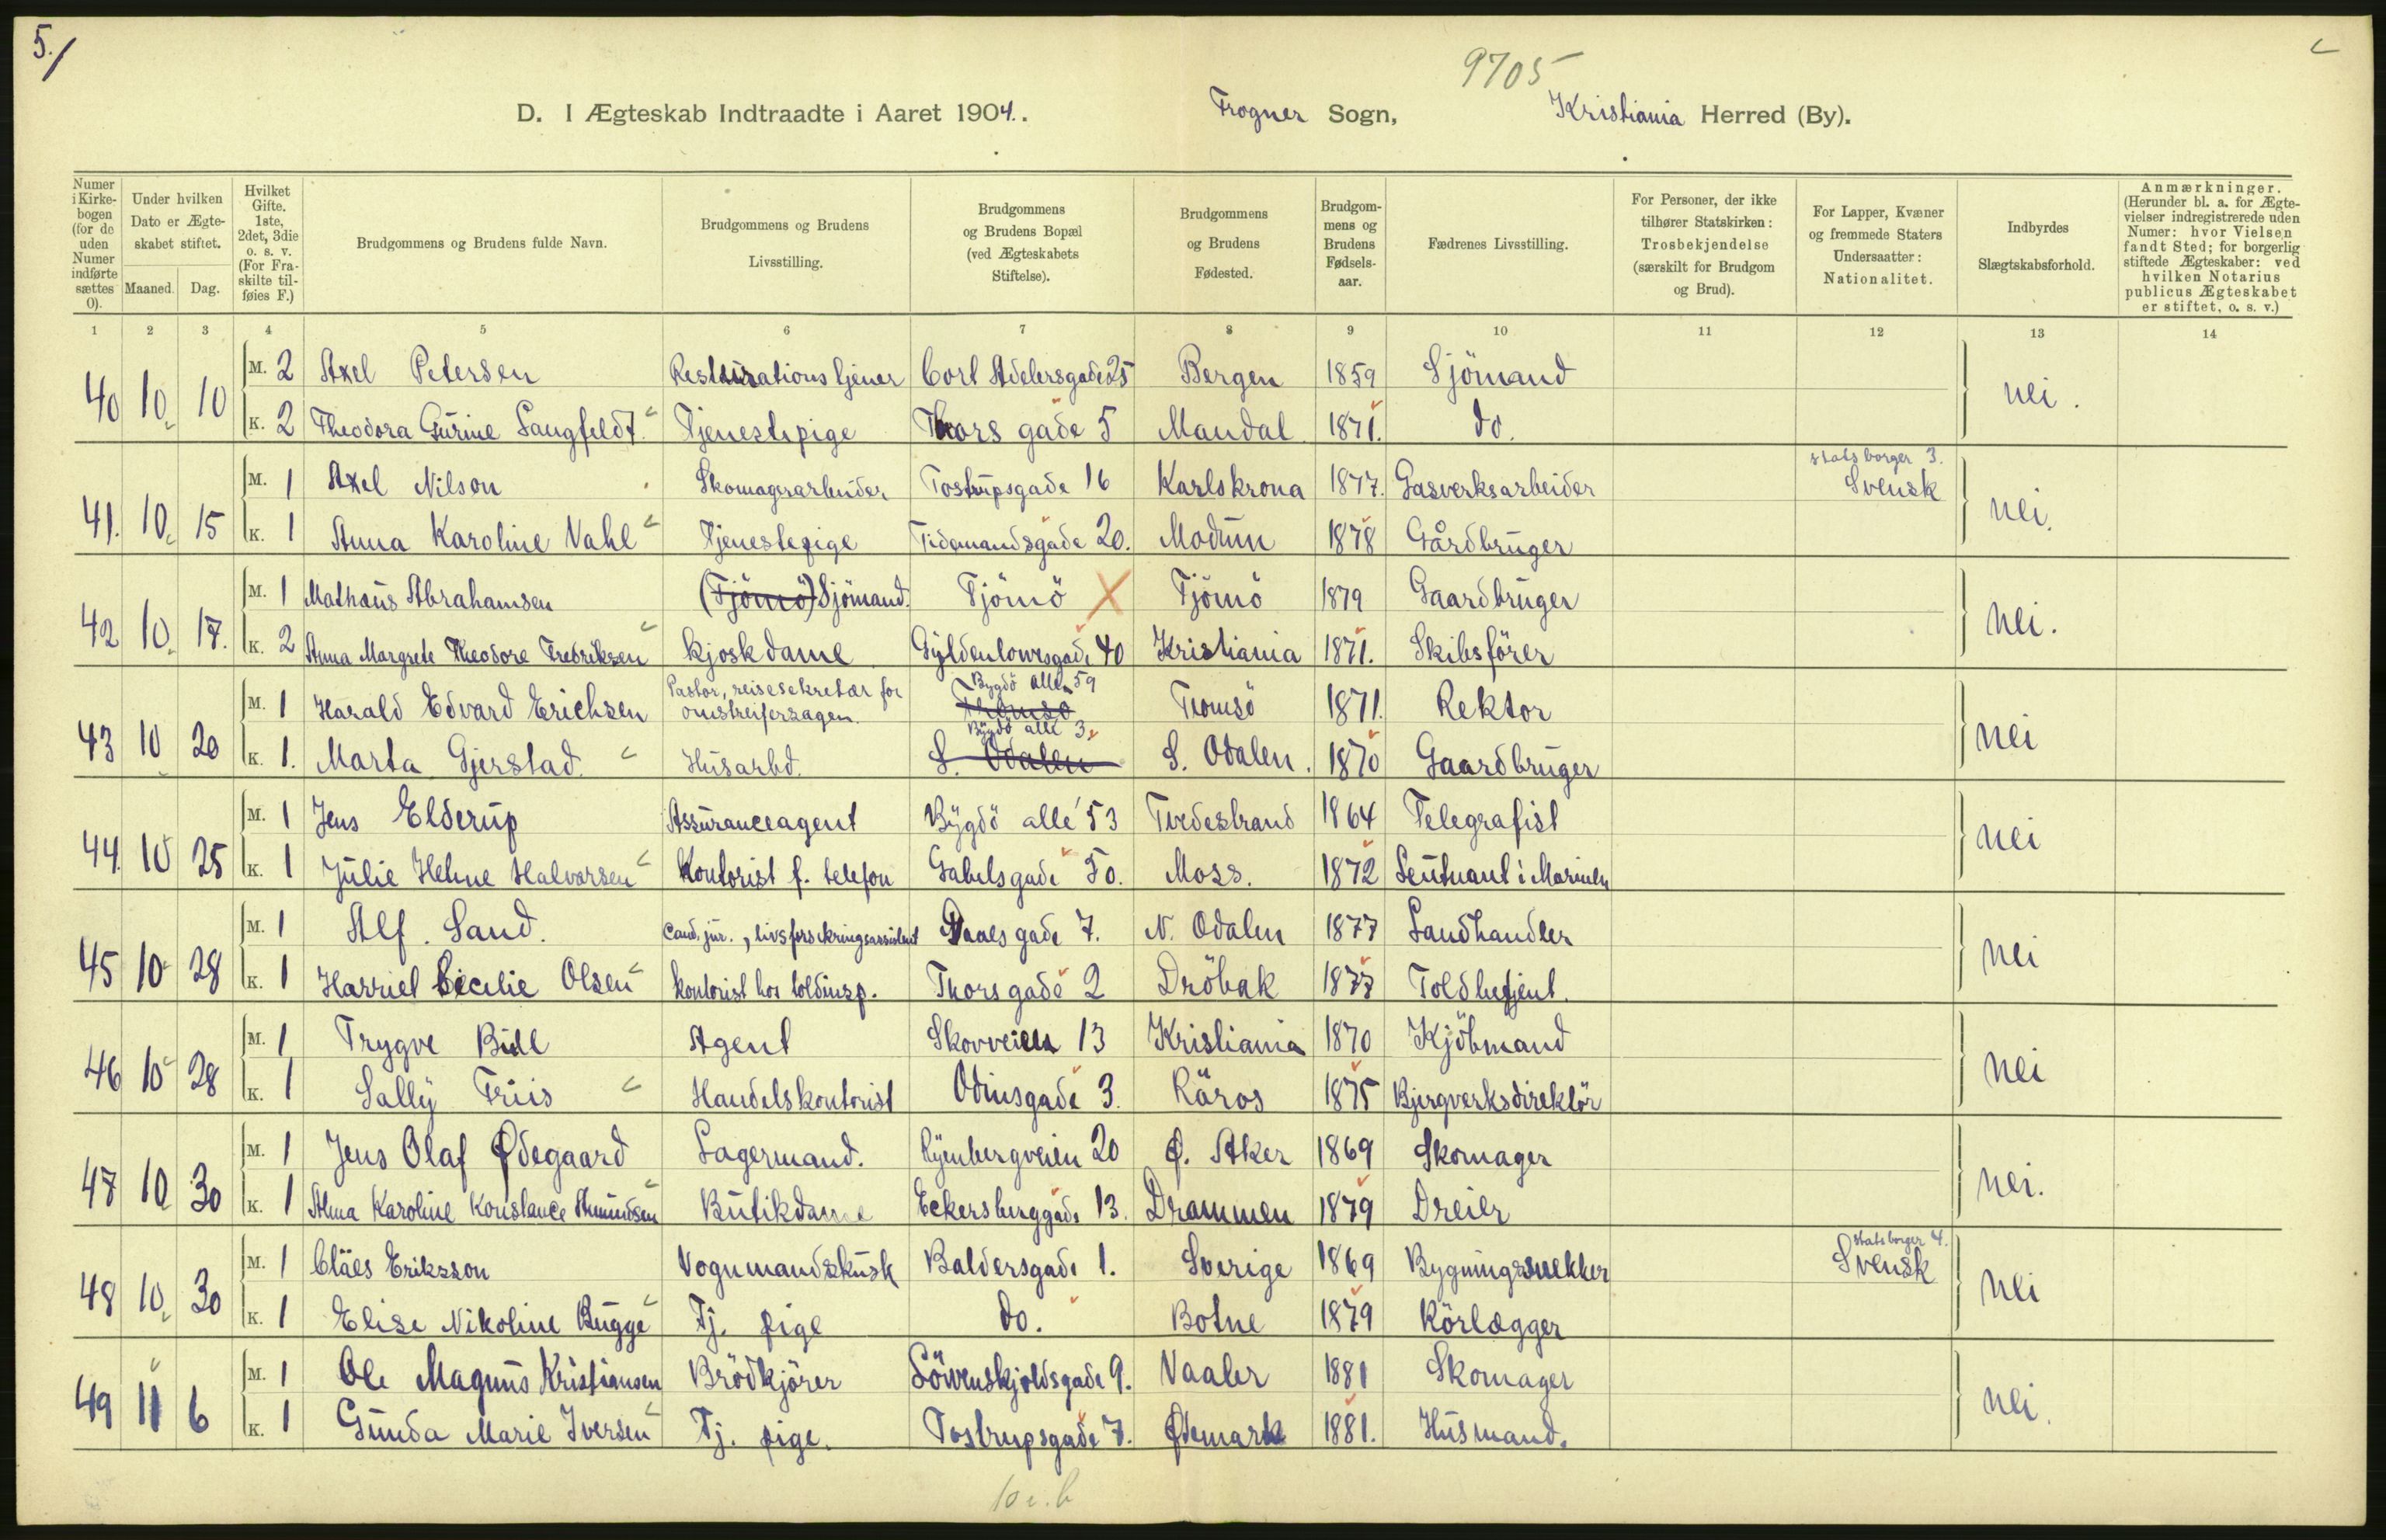 5./
9705
D. I Ægteskab Indtraadte i Aaret 1904. Frogner Sogn, Kristiania Herred (By).
Numer i Kirkebogen (for de uden Numer indførte sættes 0).
Under hvilken Dato er Ægteskabet stiftet.
Maaned. Dag.
Hvilket Gifte. 1ste, 2det, 3die o. s. v. (For Fraskilte tilføies F.)
Brudgommens og Brudens fulde Navn.
Brudgommens og Brudens Livsstilling.
Brudgommens og Brudens Bopæl (ved Ægteskabets Stiftelse).
Brudgommens og Brudens Fødested.
Brudgommens og Brudens Fødselsaar.
Fædrenes Livsstilling.
For Personer, der ikke tilhører Statskirken: Trosbekjendelse (særskilt for Brudgom og Brud).
For Lapper, Kvæner og fremmede Staters Undersaatter: Nationalitet.
Indbyrdes Slægtskabsforhold.
Anmærkninger. (Herunder bl. a. for Ægtevielser indregistrerede uden Numer: hvor Vielsen fandt Sted; for borgerlig stiftede Ægteskaber: ved hvilken Notarius publicus Ægteskabet er stiftet, o. s. v.)
1 2 3 4 5 6 7 8 9 10 11 12 13 14
40 10 10 M. 2 Axel Petersen Restaurationstjener Cort Adelersgade 25 Bergen 1859 Sjömand nei.
K. 2 Theodora Gurine Langfeldt Tjenestepige Thors gade 5 Mandal 1871. do.
41. 10. 15 M. 1 Axel Nilson Skomagerarbeider Tostrupsgade 16 Karlskrona 1877. Gasverksarbeider statsborger 3. Svensk nei.
K. 1 Anna Karoline Vahl Tjenestepige Tidemandsgade 20. Modum 1878 Gårdbruger
42 10. 17. M. 1 Mathäus Abrahamsen (Tjömö) Sjömand. Tjömö Tjömö 1879 Gaardbruger nei.
K. 2 Anna Margrete Theodore Fredriksen Kjoskdame Gyldenlowesgade 40 Kristiania 1871. Skibsförer
43 10 20 M. 1 Harald Edvard Erichsen Pastor, reisesekretær for omstreifersagen. Bygdö alle 59 Tromsö Tromsö 1871. Rektor nei
K. 1. Marta Gjerstad. Husarbd. Bygdö alle 3. S. Odalen S. Odalen. 1870 Gaardbruger
44. 10 25 M. 1 Jens Elderup Assuranceagent Bygdö allé 53 Tvedestrand 1864 Telegrafist nei
K. 1 Julie Helene Halvorsen Kontorist f. telefon Gabelsgade 50. Moss. 1872 Leutnant i Marinen
45 10 28 M. 1 Alf. Sand. Cand. jur., livsforsikringsassistent Daaes gade 7. N. Odalen 1877 Landhandler nei
K. 1 Harriet Cecilie Olsen kontorist hos toldinsp. Thorsgade 2 Dröbak 1877 Toldbetjent.
46 10 28 M. 1 Trygve Bull Agent Skovveien 13 Kristiania 1870 Kjöbmand nei
K. 1 Sally Friis Handelskontorist Odinsgade 3. Röros 1875 Bjergverksdirektör
47 10 30 M. 1 Jens Olaf Ødegaard Lagermand. Ryenbergveien 20 Ø. Aker 1869 Skomager nei.
K. 1 Alma Karoline Konstance Amundsen Butikdame Eckersberggade 13. Drammen 1879 Dreier
48 10. 30 M. 1 Cläes Eriksson Vognmandskusk Baldersgade 1. Sverige 1869 Bygningssnekker statsborger 4. Svensk nei
K. 1 Elise Nikoline Bugge Tj. pige do. Botne 1879 Rörlægger
49 11 6 M. 1 Ole Magnus Kristiansen Brödkjörer Lövenskjoldsgade 9. Vaaler 1881 Skomager nei.
K. 1 Gunda Marie Iversen Tj. pige. Tostrupsgade 7. Ødemark 1881. Husmand.